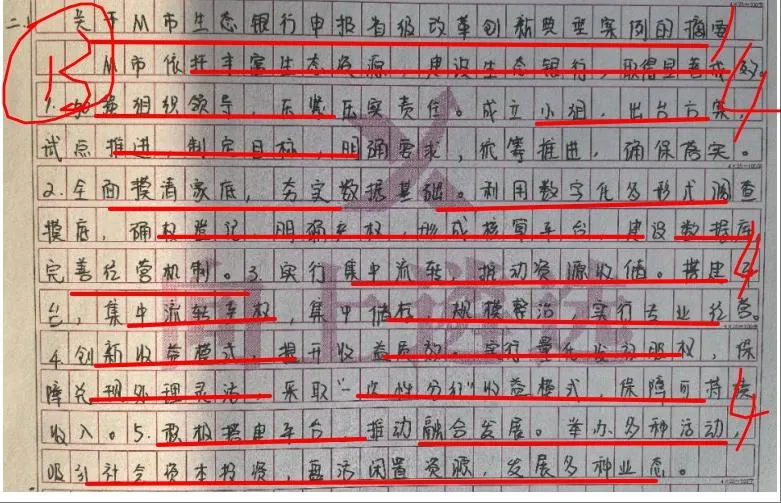 二、关于M市生态银行申报省级改革创新典型案例的摘要
13
M市依托丰富生态资源，建设生态银行，取得显著成效。
1. 加强组织领导，压紧压实责任。成立小组，出台方案，
试点推进，制定目标，明确要求，统筹推进，确保落实。
2.全面摸清家底，夯实数据基础。利用数字化多形式调查
摸底，确权登记，明确产权，形成核算平台，建设数据库
完善经营机制。3 实行集中流转，推动资源收储。搭建平
台，集中流转产权，集中储存，规模整治，实行专业经营。
4.创新收益模式，提升收益质效。实行量化发放股权，保
障兑现处理灵活，采取“一次性分红”收益模式，保障可持续
收入。5.积极搭建平台，推动融合发展。举办多种活动，
吸引社会资本投资，盘活闲置资源，发展多种业态。